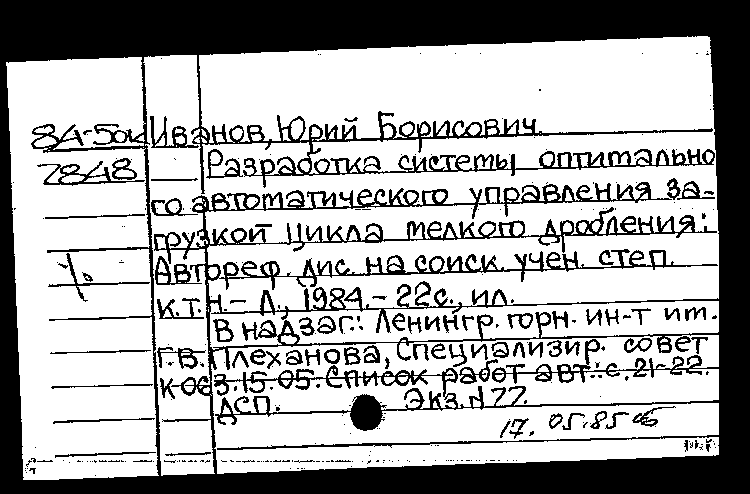 84-5ок Иванов, Юрий Борисович.
2848 Разработка системы оптимально
го автоматического управления за-
грузкой цикла мелкого дробления:
Автореф. дис. на соиск. учен. степ.
к.т.н. - Л., 1984. - 22с., ил.
В надзаг.: Ленингр. горн. ин-т им.
Г.В. Плеханова, Специализир. совет
К-063.15.05. Список работ авт.: с. 21-22.
ДСП. Экз. № 77.
17.05.85